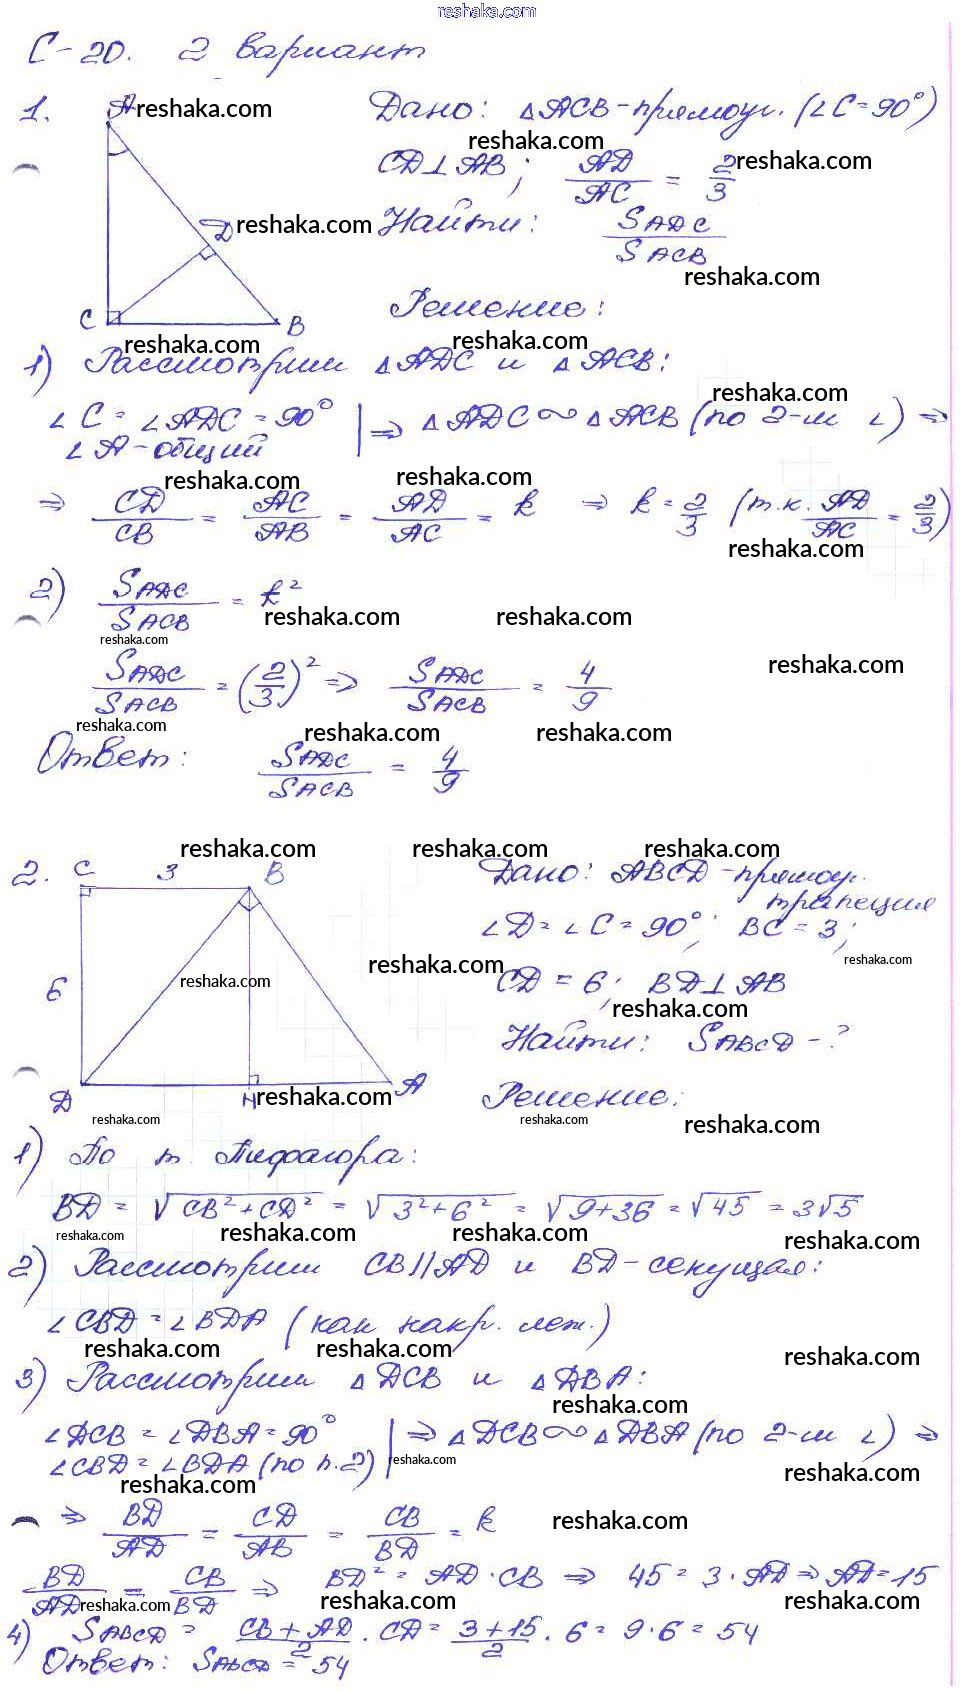 reshaka.com
С-20. 2 вариант
1. A reshaka.com Дано: △ACB-прямоуг. (∠C=90°)
reshaka.com
CD⊥AB; AD/AC = 2/3 reshaka.com
D reshaka.com Найти: S ADC / S ACB
reshaka.com
C B Решение:
reshaka.com reshaka.com
1) Рассмотрим △ADC и △ACB:
reshaka.com
∠C = ∠ADC = 90° | ⇒ △ADC ∾ △ACB (по 2-м ∠) ⇒
∠A-общий
reshaka.com reshaka.com
⇒ CD/CB = AC/AB = AD/AC = k ⇒ k = 2/3 (т.к. AD/AC = 2/3)
reshaka.com
2) S ADC / S ACB = k²
reshaka.com reshaka.com
reshaka.com
S ADC / S ACB = (2/3)² ⇒ S ADC / S ACB = 4/9 reshaka.com
reshaka.com reshaka.com reshaka.com
Ответ: S ADC / S ACB = 4/9
reshaka.com reshaka.com reshaka.com
2. C 3 B Дано: ABCD-прямоуг.
трапеция
∠D = ∠C = 90°; BC = 3;
reshaka.com reshaka.com
6 reshaka.com CD = 6; BD⊥AB
reshaka.com
Найти: S ABCD - ?
D H reshaka.com A Решение:
reshaka.com reshaka.com reshaka.com
1) По т. Пифагора:
BD = √CB²+CD² = √3²+6² = √9+36 = √45 = 3√5
reshaka.com reshaka.com reshaka.com reshaka.com
2) Рассмотрим CB||AD и BD-секущая:
∠CBD = ∠BDA (как накр. леж.)
reshaka.com reshaka.com reshaka.com
3) Рассмотрим △DCB и △DBA:
reshaka.com
∠DCB = ∠DBA = 90° | ⇒ △DCB ∾ △DBA (по 2-м ∠) ⇒
∠CBD = ∠BDA (по п.2) reshaka.com
reshaka.com reshaka.com
⇒ BD/AD = CD/AB = CB/BD = k reshaka.com
BD/AD = CB/BD ⇒ BD² = AD · CB ⇒ 45 = 3 · AD ⇒ AD = 15
reshaka.com reshaka.com reshaka.com reshaka.com
4) S ABCD = CB + AD / 2 · CD = 3+15 / 2 · 6 = 9·6 = 54
Ответ: S ABCD = 54